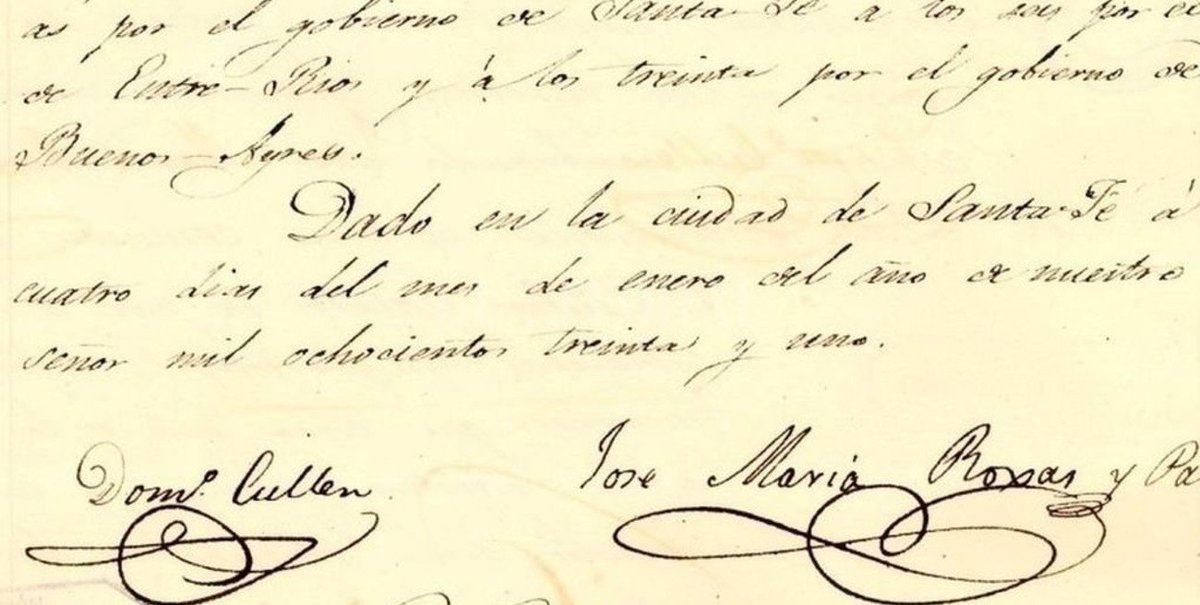 as por el gobierno de Santa-Fé a los seis por el
de Entre-Rios y à los treinta por el gobierno de
Buenos-Ayres.
Dado en la ciudad de Santa-Fé à
cuatro dias del mes de enero del año de nuestro
señor mil ochocientos treinta y uno.
Dom.º Cullen.
Jose Maria Roxas y Pa